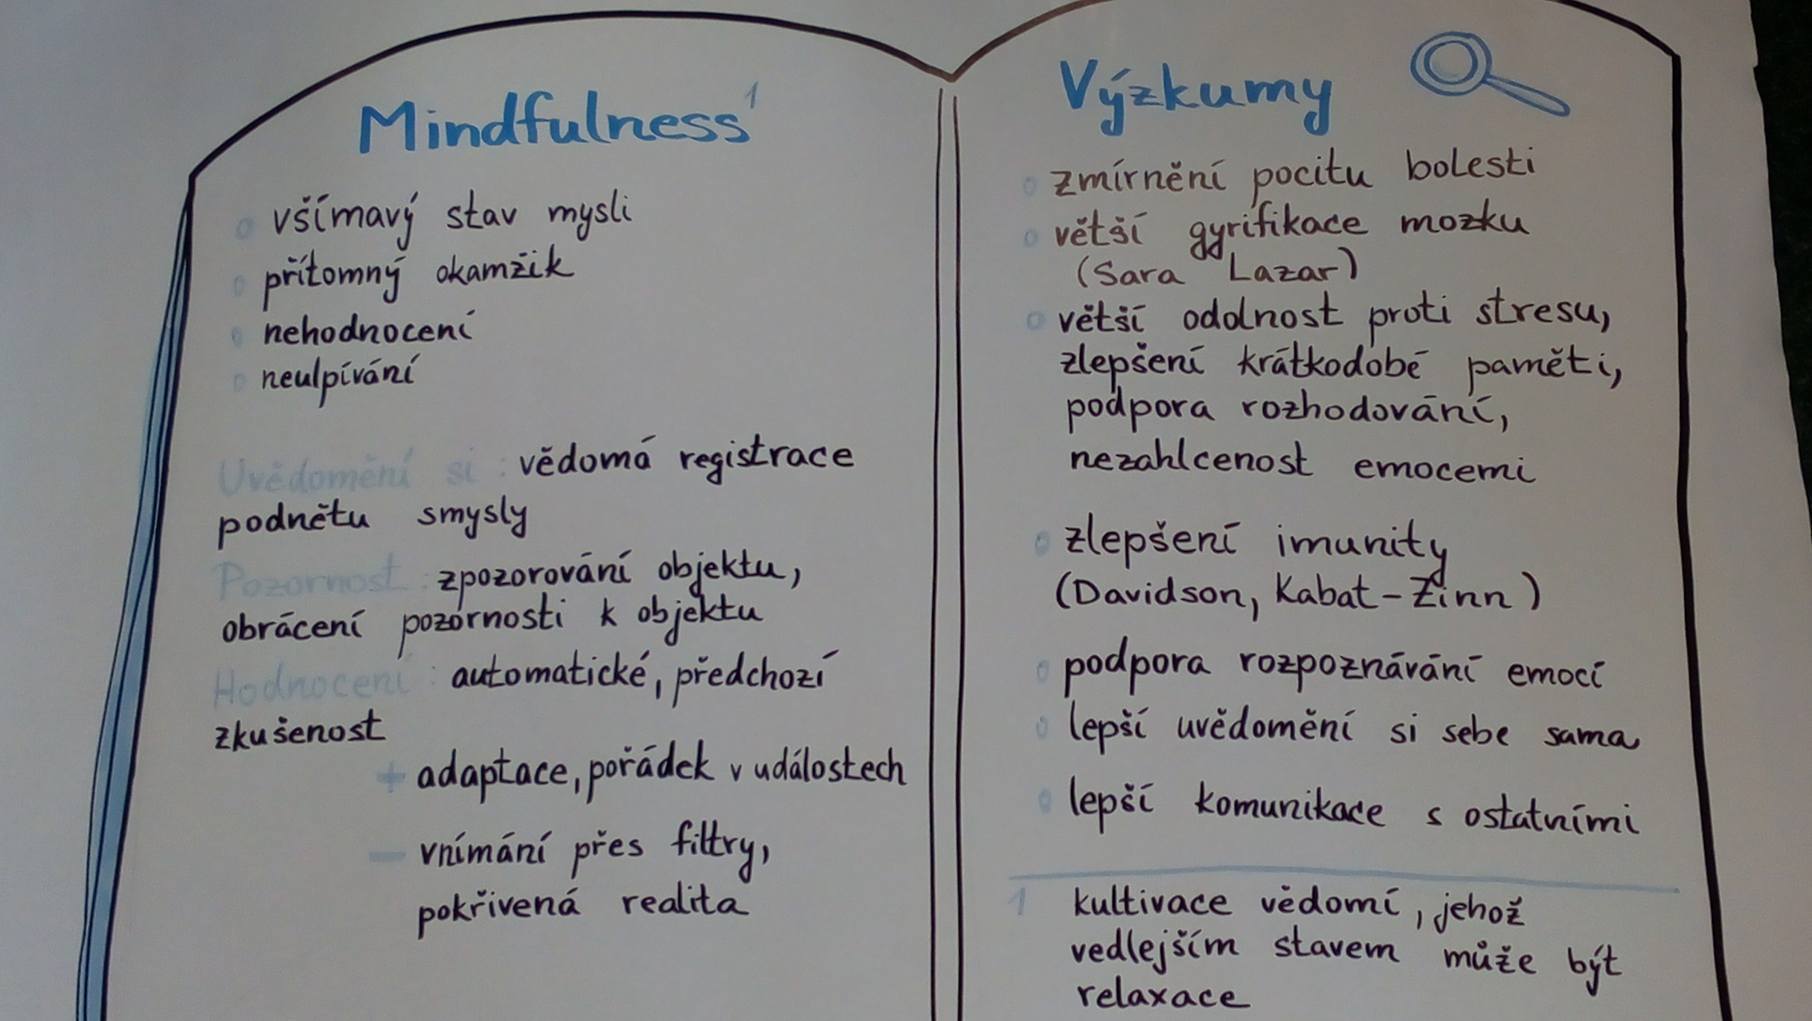 Mindfulness¹
o všímavý stav mysli
o přítomný okamžik
o nehodnocení
o neulpívání
Uvědomění si : vědomá registrace
podnětu smysly
Pozornost : zpozorování objektu,
obrácení pozornosti k objektu
Hodnocení : automatické, předchozí
zkušenost
+ adaptace, pořádek v událostech
− vnímání přes filtry,
pokřivená realita
Výzkumy
o zmírnění pocitu bolesti
o větší gyrifikace mozku
(Sara Lazar)
o větší odolnost proti stresu,
zlepšení krátkodobé paměti,
podpora rozhodování,
nezahlcenost emocemi
o zlepšení imunity
(Davidson, Kabat-Zinn)
o podpora rozpoznávání emocí
o lepší uvědomění si sebe sama
o lepší komunikace s ostatními
1 kultivace vědomí, jehož
vedlejším stavem může být
relaxace